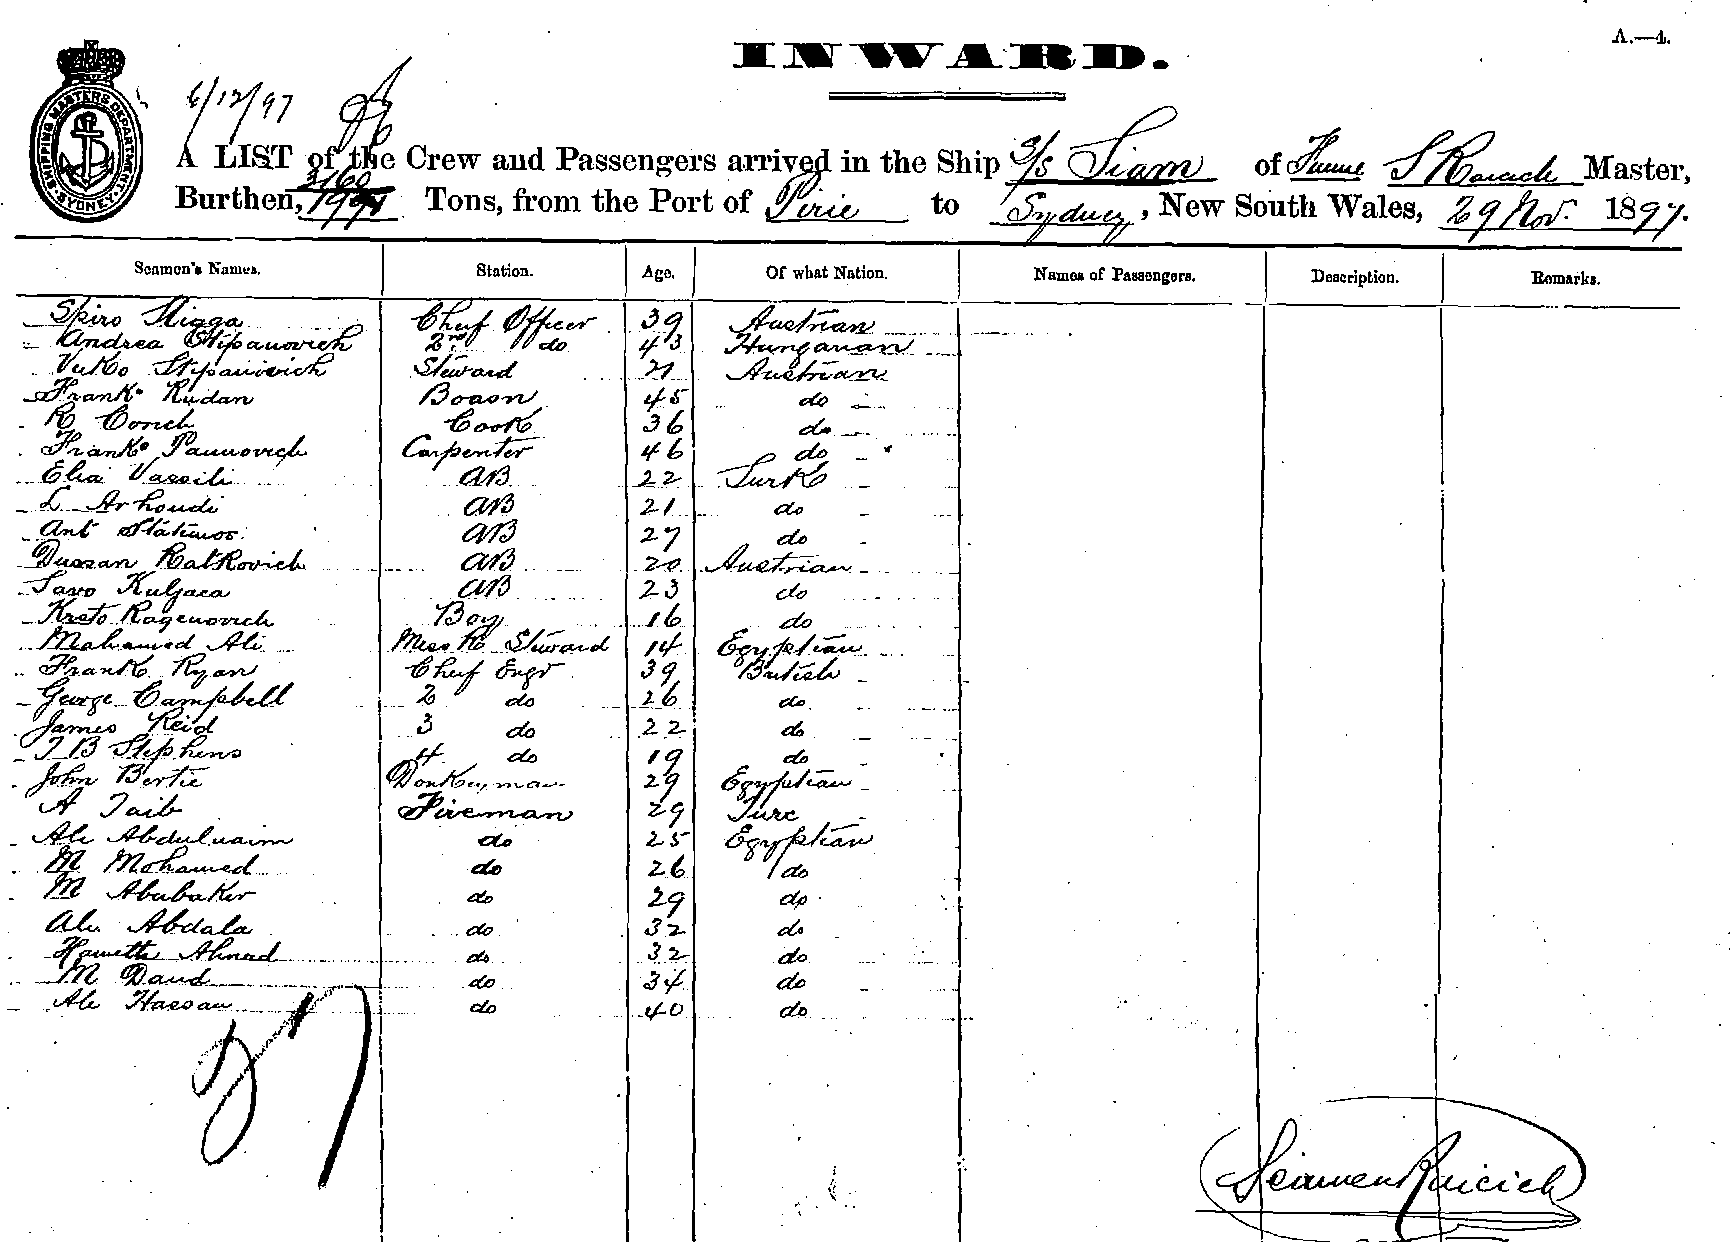 A.—4.
INWARD.
SHIPPING MASTERS DEPARTMENT. SYDNEY.
6/12/97
A LIST of the Crew and Passengers arrived in the Ship S/S Siam of Fiume S Master,
Burthen, Tons, from the Port of Pirie to Sydney, New South Wales, 29 Nov. 1897.
Seamen's Names. Station. Age. Of what Nation. Names of Passengers. Description. Remarks.
Spiro Chief Officer 39 Austrian
Andrea Stipanovich 2nd do 43 Hungarian
Vuko Stipanovich Steward 21 Austrian
Frank Rudan Boasn 45 do
R Cook 36 do
Frank Carpenter 46 do
Elia Vassili AB 22 Turk
L Arhoudi AB 21 do
Ant AB 27 do
Dussan Ratkovich AB 20 Austrian
Savo Kuljaca AB 23 do
Krsto Ragenovich Boy 16 do
Mohamed Ali Mess R Steward 14 Egyptian
Frank Ryan Chief Engr 39 British
George Campbell 2 do 26 do
James Reid 3 do 22 do
J B Stephens 4 do 19 do
John Bertie Donkeyman 29 Egyptian
A Taib Fireman 29 Turc
Ali do 25 Egyptian
M Mohamed do 26 do
M Abubaker do 29 do
Ali Abdala do 32 do
Ahmad do 32 do
M Daud do 34 do
Ali Hassan do 40 do
27